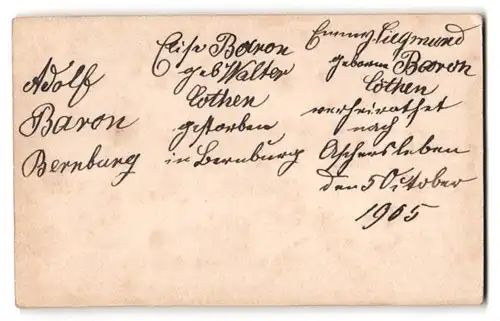 Adolf
Baron
Bernburg
Elise Baron
geb Walter
Cöthen
gestorben
in Bernburg
Emmy Siegmund
geborene Baron
Cöthen
verheirathet
nach
Aschersleben
den 5 October
1905